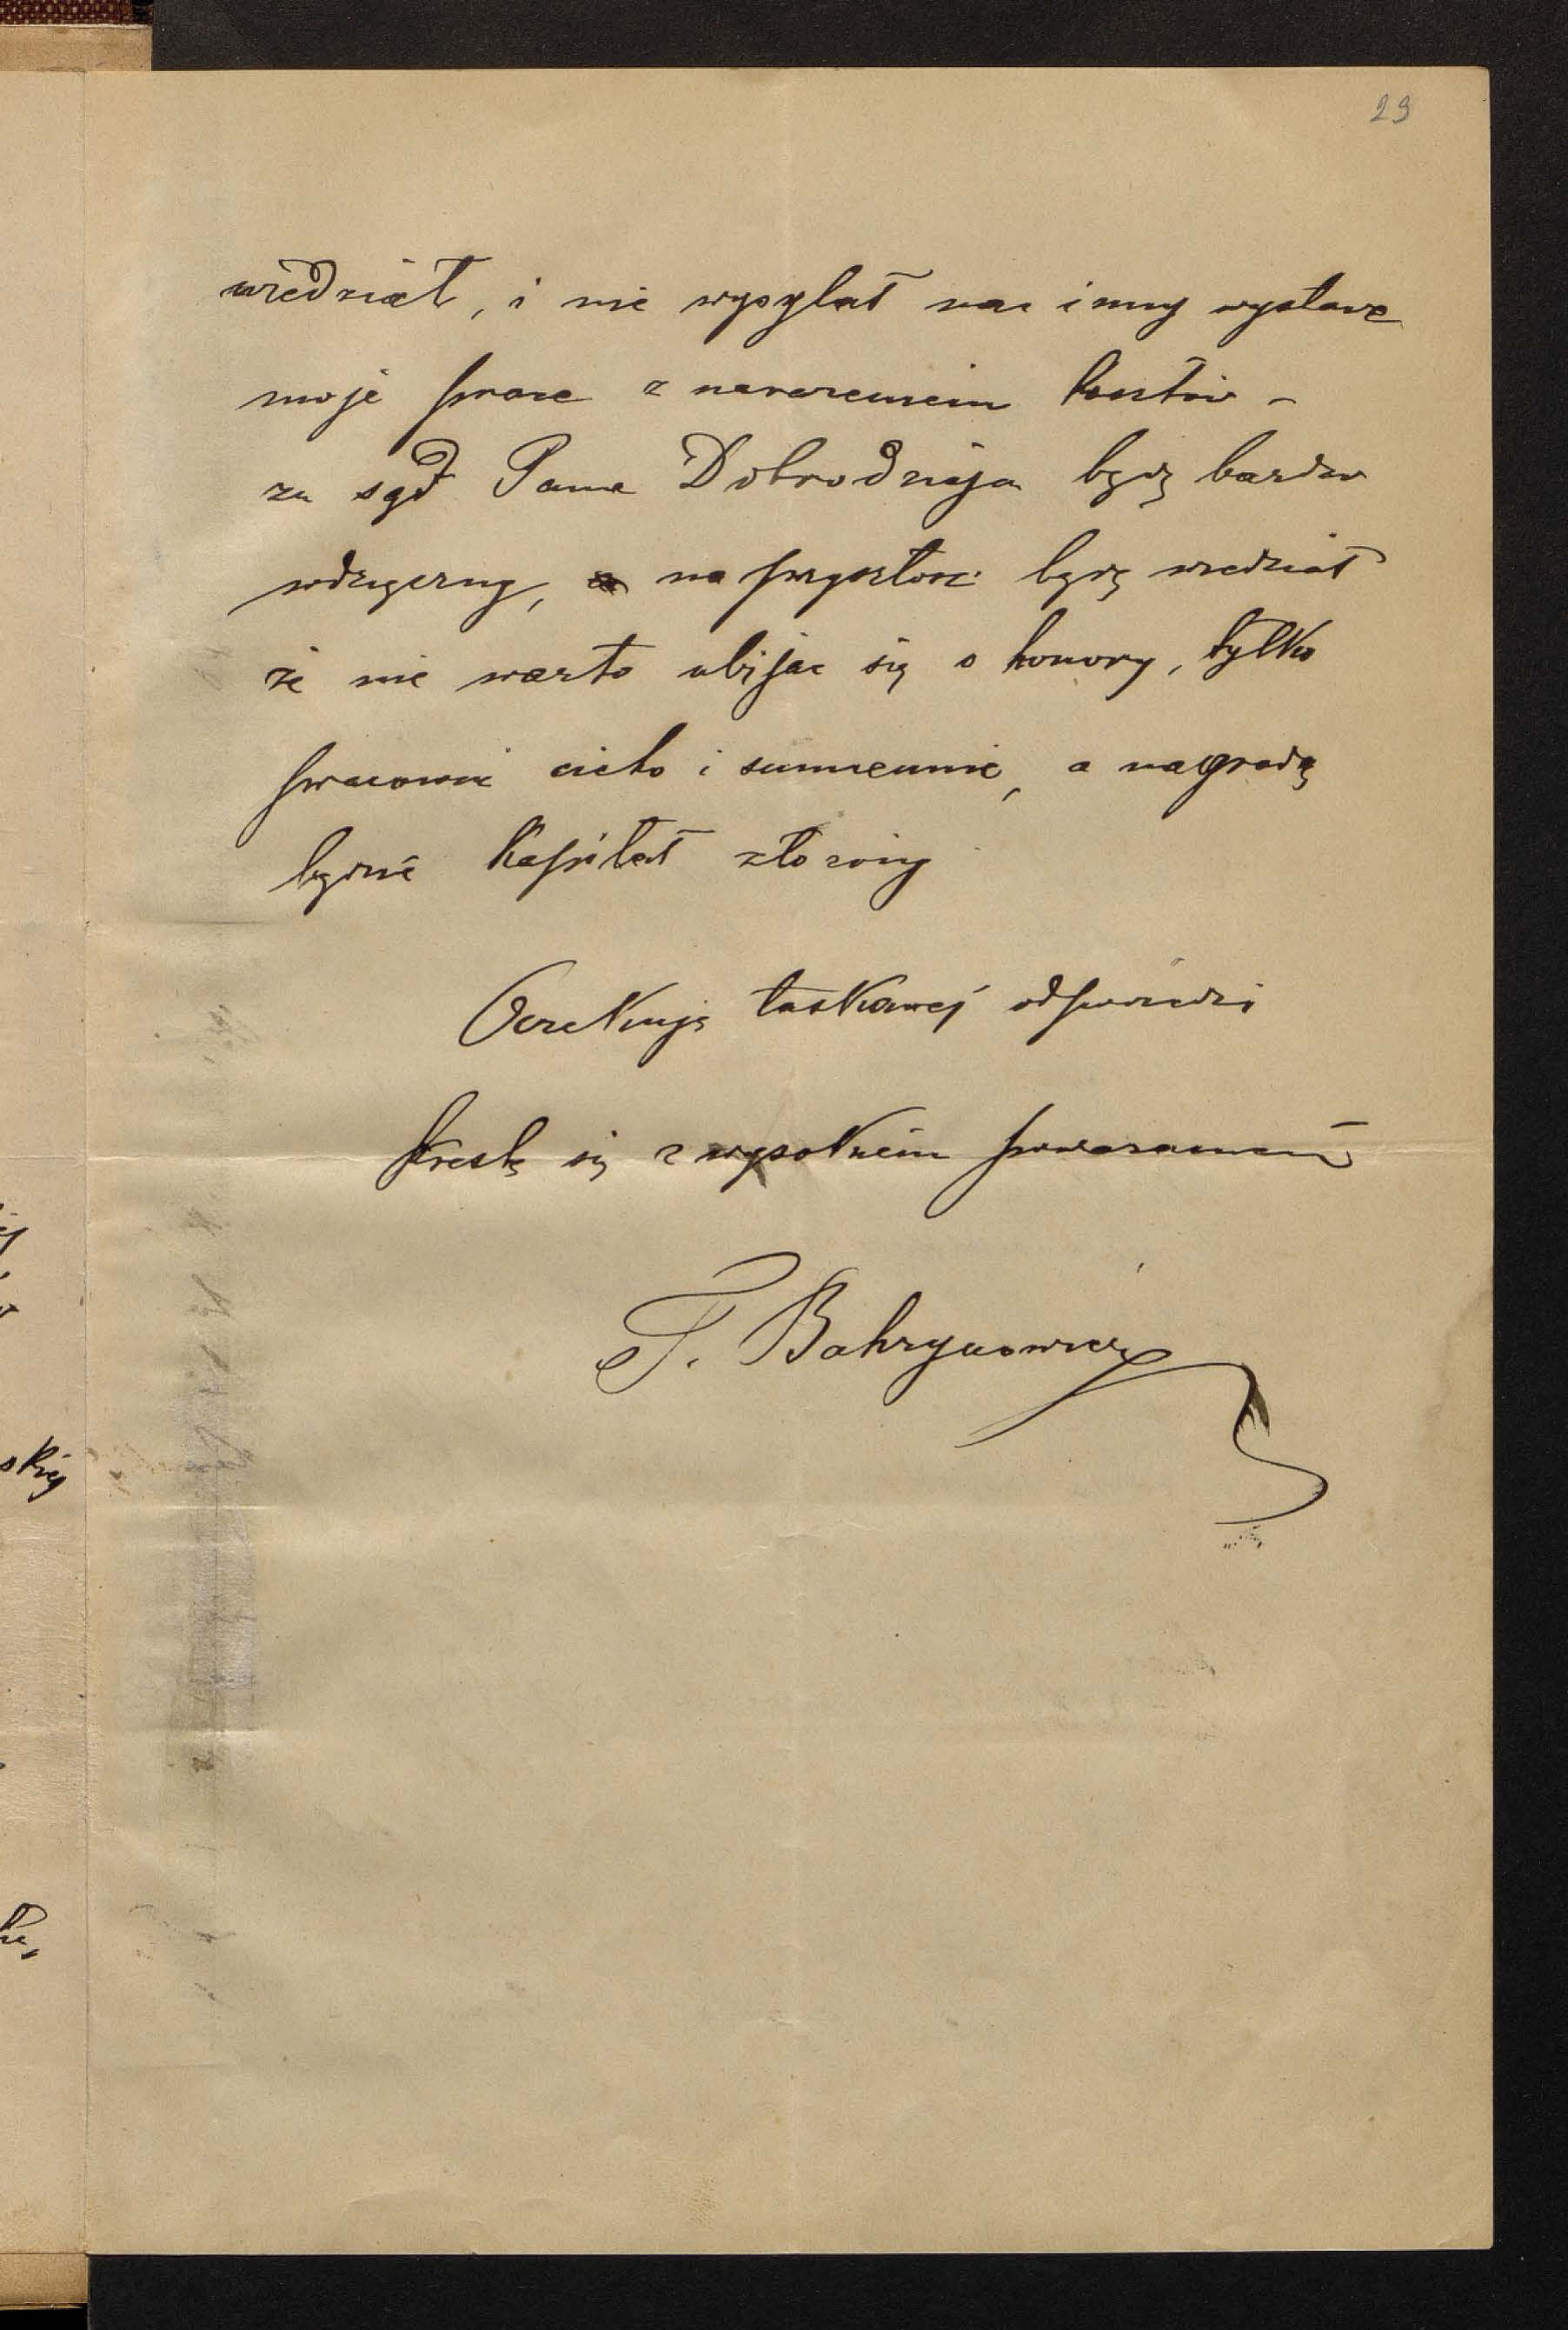 29
wiedział, i nie wysyłał na inny wystawe
moje prace z narazeniem kosztów –
za sąd Pana Dobrodzieja będę bardzo
wdzięczny, na przyszłość będę wiedział
że nie warto ubijać się o honory, tylko
pracować cicho i sumiennie, a nagrodą
będzie kapitał złożony
Oczekuję łaskawej odpowiedzi
kreslę się z wysokiem poważaniem
T. Bahrynowicz